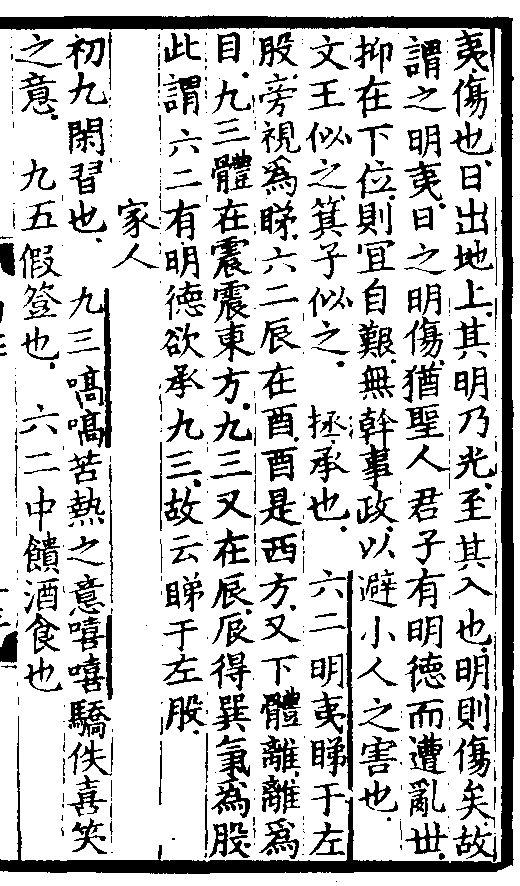 夷傷也日出地上其明乃光至其入也明則傷矣故
謂之明夷日之明傷猶聖人君子有明德而遭亂丗
抑在下位則冝自艱無幹事政以避小人之害也
文王似之箕子似之　拯承也　六二明夷睇于左
股旁視為睇六二辰在酉酉是西方又下體離離爲
目九三體在震震東方九三又在辰辰得巽氣爲股
此謂六二有明德欲承九三故云睇于左股
家人
初九閑習也　九三嗃嗃苦熱之意嘻嘻驕佚喜笑
之意　九五假登也　六二中饋酒食也